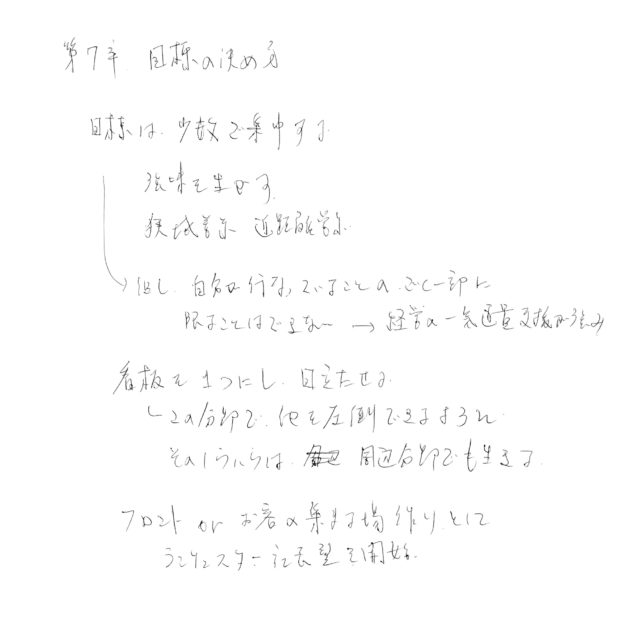 第7章 目標の決め方
目標は、少数で集中する
強味を生かす
狭域営業 近距離営業
但し、自分が行なっていることの、ごく一部に
限ることはできない → 経営の一気通貫支援が強み
看板を1つにし、目立たせる
この分野で、他を圧倒できるように
そのうちには、周辺分野でも生きる
フロント or お客の集まる場作りとして
ランチェスター 開始